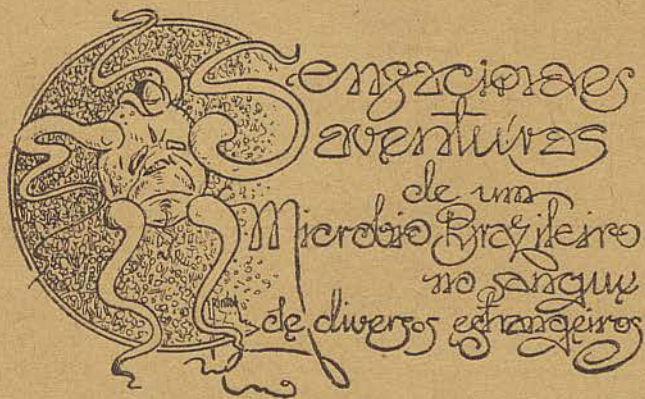 Sensacionaes
aventuras
de um
Microbio Brazileiro
no sangue
de diversos estrangeiros